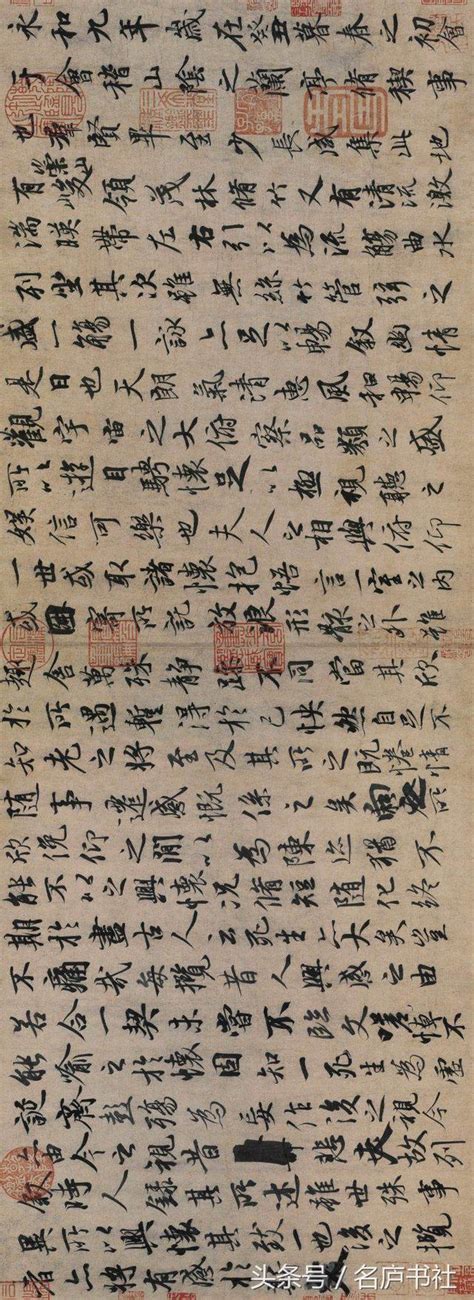 永和九年歲在癸丑暮春之初會
于會稽山陰之蘭亭脩禊事
也羣賢畢至少長咸集此地
有崇山峻領茂林脩竹又有清流激
湍暎帶左右引以為流觴曲水
列坐其次雖無絲竹管弦之
盛一觴一詠亦足以暢敘幽情
是日也天朗氣清惠風和暢仰
觀宇宙之大俯察品類之盛
所以遊目騁懷足以極視聽之
娛信可樂也夫人之相與俯仰
一世或取諸懷抱悟言一室之內
或因寄所託放浪形骸之外雖
趣舍萬殊靜躁不同當其欣
於所遇暫得於己怏然自足不
知老之將至及其所之既惓情
隨事遷感慨係之矣向之所
欣俛仰之閒以為陳迹猶不
能不以之興懷況脩短隨化終
期於盡古人云死生亦大矣豈
不痛哉每攬昔人興感之由
若合一契未嘗不臨文嗟悼不
能喻之於懷固知一死生為虛
誕齊彭殤為妄作後之視今
亦由今之視昔悲夫故列
敘時人錄其所述雖世殊事
異所以興懷其致一也後之攬
者亦將有感於
头条号 / 名庐书社